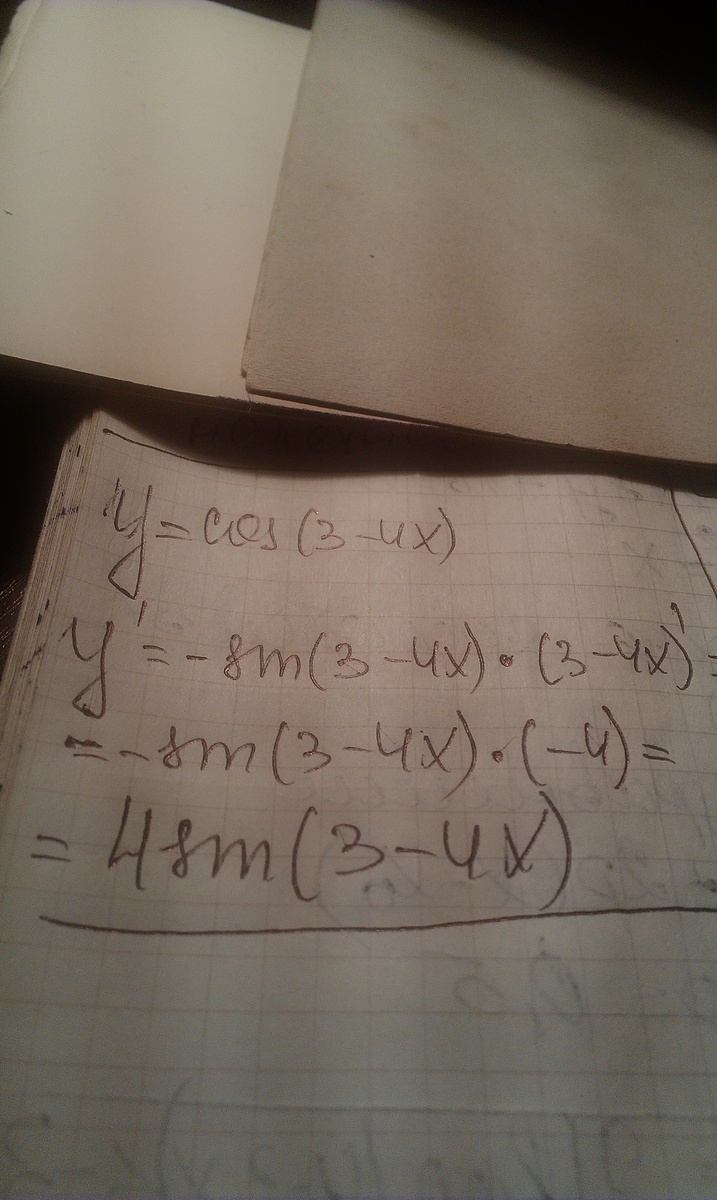 y = cos(3-4x)
y' = -sin(3-4x)·(3-4x)' =
= -sin(3-4x)·(-4) =
= 4sin(3-4x)